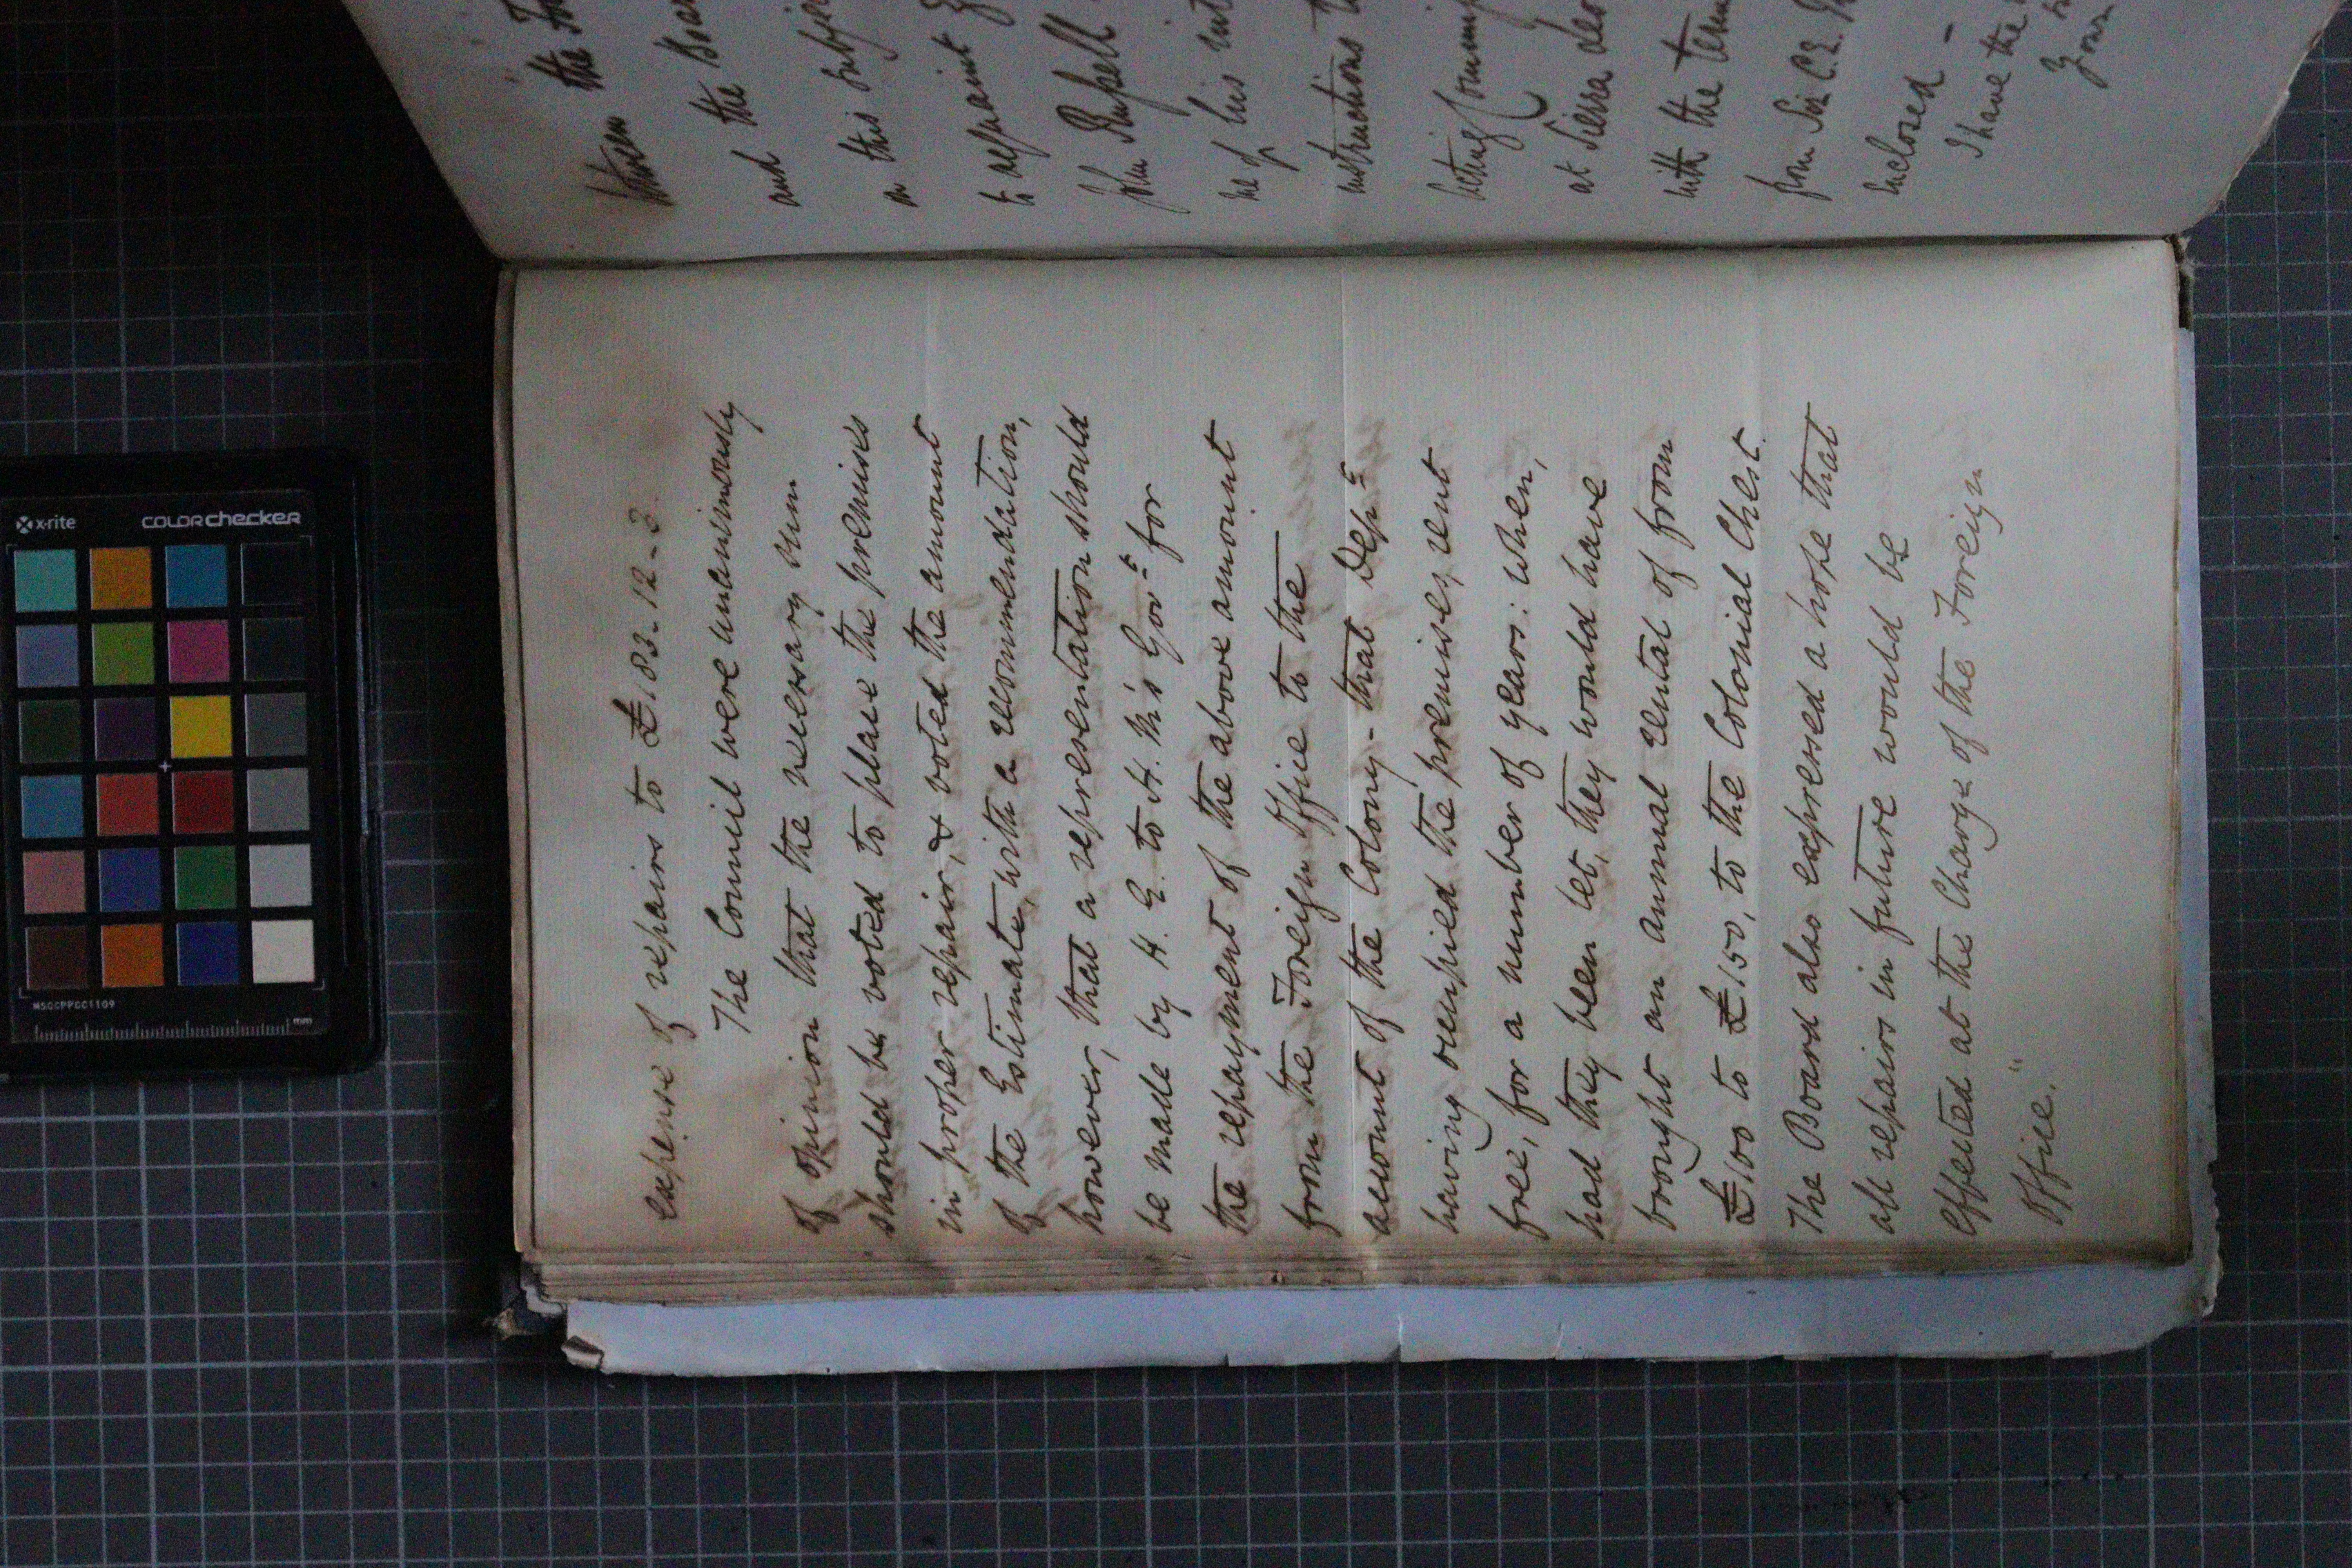 between the
and the
on this
to acquaint
John Russell
me of his
instructions
acting
at Sierra
with the
from Sir C. E.
inclosed -
I have the
Your
expense of repairs to £183-12-3.
The Council were unanimously
of opinion that the necessary sum
should be voted to place the premises
in proper repair, & voted the amount
of the Estimate, with a recommendation,
however, that a representation should
be made by H. E. to H. M's Govt for
the repayment of the above amount
from the Foreign Office to the
account of the Colony - that Dept
having occupied the premises, rent
free, for a number of years: when,
had they been let, they would have
brought an annual rental of from
£100 to £150, to the Colonial Chest.
The Board also expressed a hope that
all repairs in future would be
effected at the Charge of the Foreign
Office."
x-rite
colorchecker
MSCCPPCC1109
mm